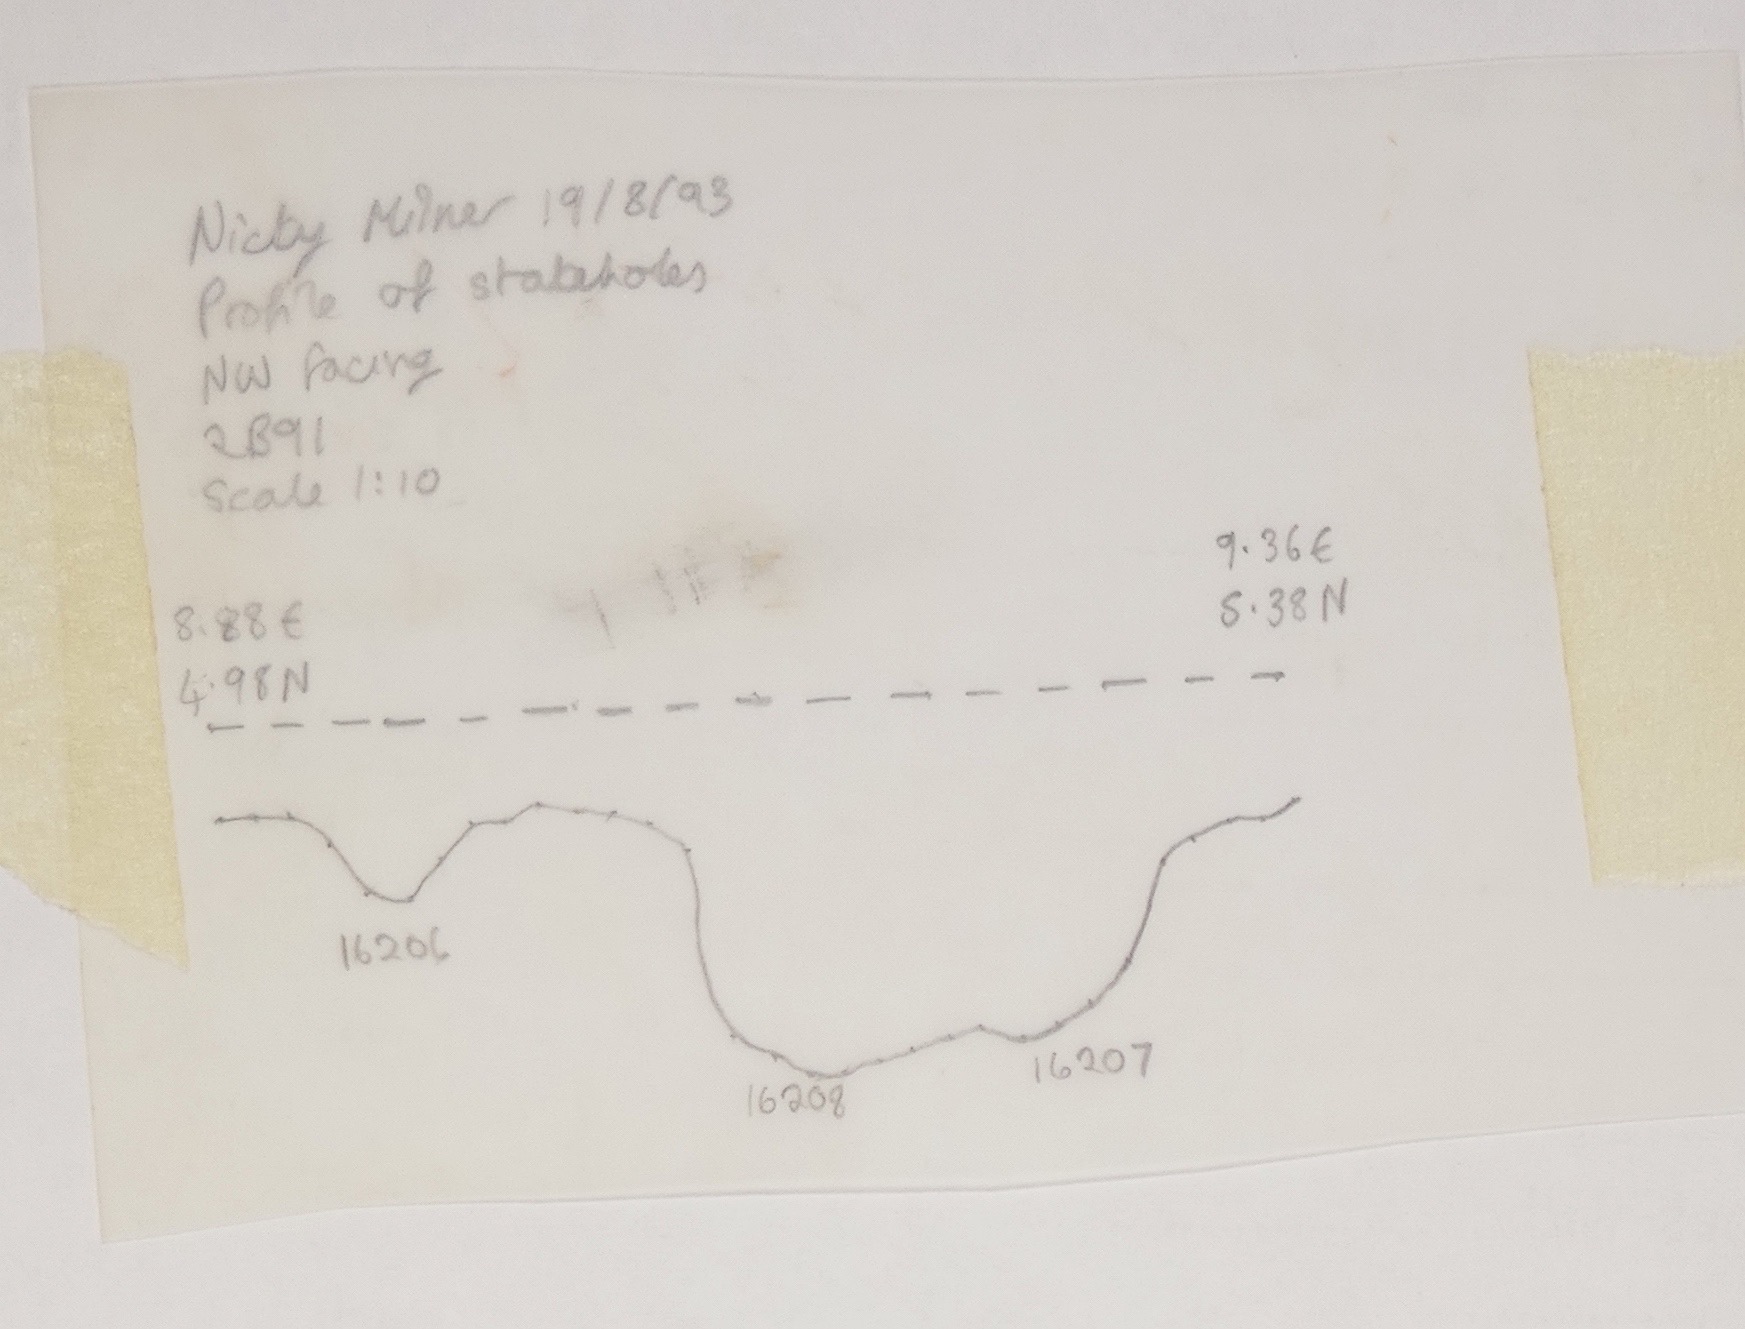 Nicky Milner 19/8/93
Profile of stakeholes
NW facing
2B91
Scale 1:10
9.36E
5.38N
8.88E
4.98N
16206
16207
16208